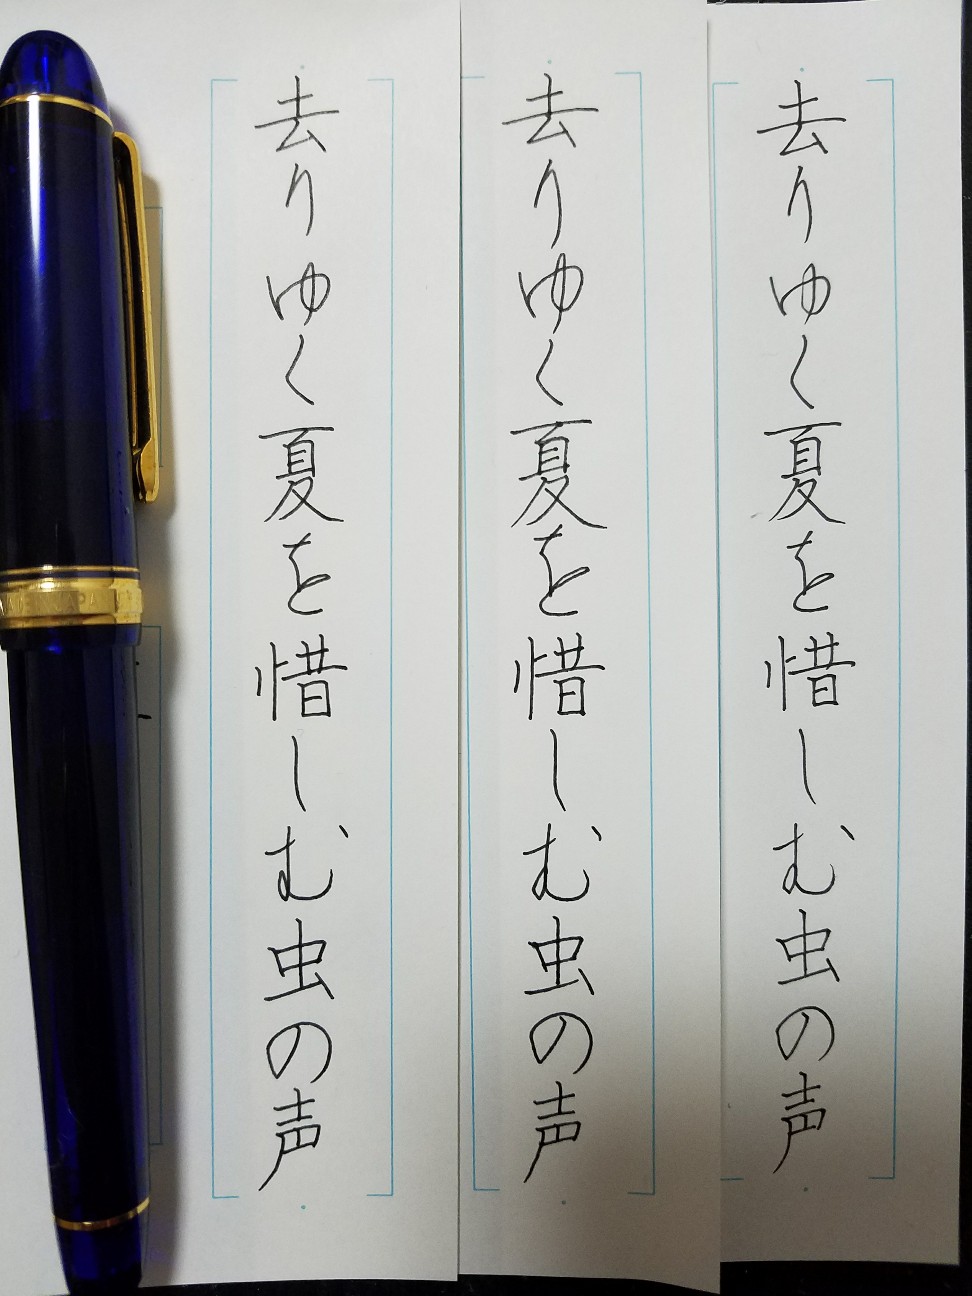 去りゆく夏を惜しむ虫の声
去りゆく夏を惜しむ虫の声
去りゆく夏を惜しむ虫の声